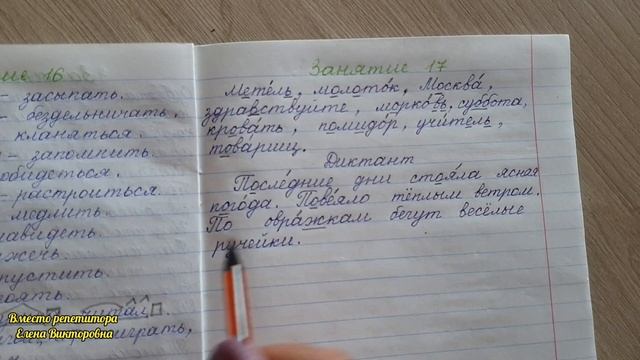 ие 16
– засыпать.
– бездельничать,
кланяться.
– запомнить.
обидеться.
– расстроиться.
медлить.
навидеть
жечь.
пустить.
оять.
читал
играть,
Занятие 17
Метель, молоток, Москва,
здравствуйте, морковь, суббота,
кровать, помидор, учитель,
товарищ.
Диктант
Последние дни стояла ясная
погода. Повеяло тёплым ветром.
По овражкам бегут весёлые
ручейки.
Вместо репетитора
Елена Викторовна